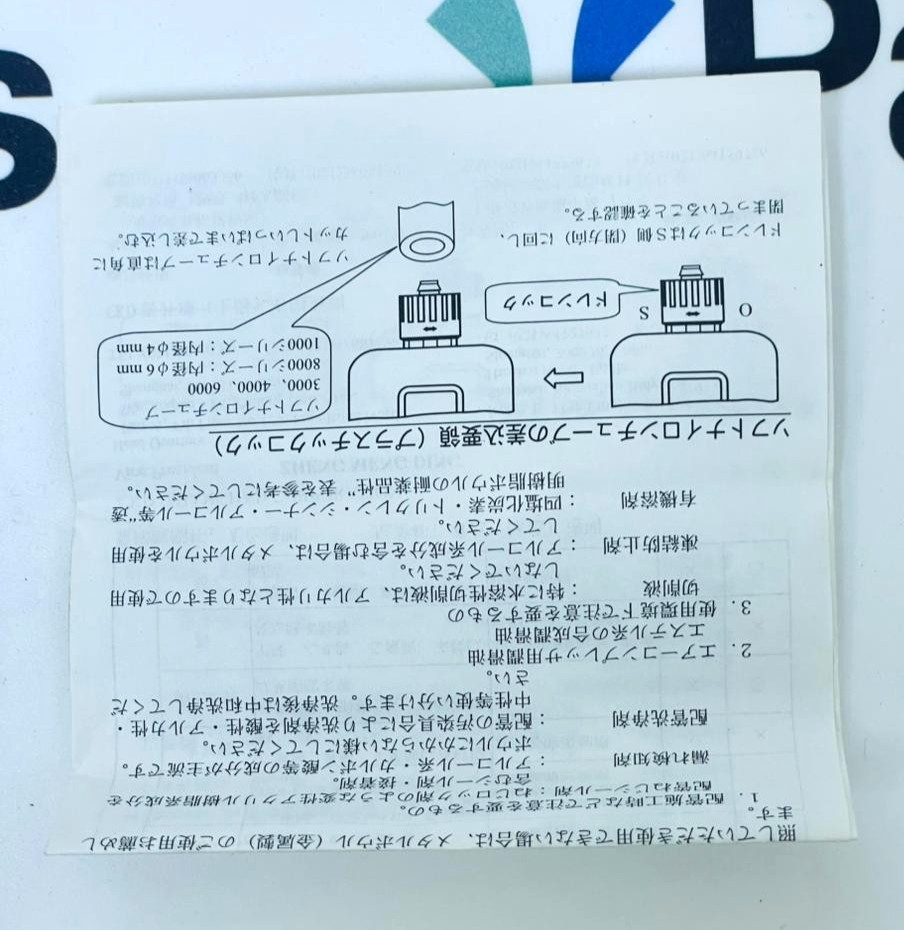 照していただき使用できない場合は、メタルボウル（金属製）のご使用お薦めし
ます。
1．配管施工時などで注意を要するもの。
配管ねじシール剤：ねじロック剤のような変性アクリル樹脂系成分を
含むシール剤・接着剤。
漏れ検知剤：アルコール系・カルボン酸等の成分が主流です。
ボウルにかからない様にしてください。
配管洗浄剤：配管の汚染具合により洗浄剤を酸性・アルカリ性・
中性等使い分けます。洗浄後は中和洗浄してくだ
さい。
2．エアーコンプレッサ用潤滑油
エステル系の合成潤滑油
3．使用環境下で注意を要するもの
切削液：特に水溶性切削液は、アルカリ性となりますので使用
しないでください。
凍結防止剤：アルコール系成分を含む場合は、メタルボウルを使用
してください。
有機溶剤：四塩化炭素・トリクレン・シンナー・アルコール等“透
明樹脂ボウルの耐薬品性”表を参考にしてください。
ソフトナイロンチューブの差込要領（プラスチックコック）
O
S
ドレンコック
ドレンコックはS側（閉方向）に回し、
閉まっていることを確認する。
ソフトナイロンチューブ
3000、4000、6000
8000シリーズ：内径φ6mm
1000シリーズ：内径φ4mm
ソフトナイロンチューブは直角に
カットしいっぱいまで差し込む。